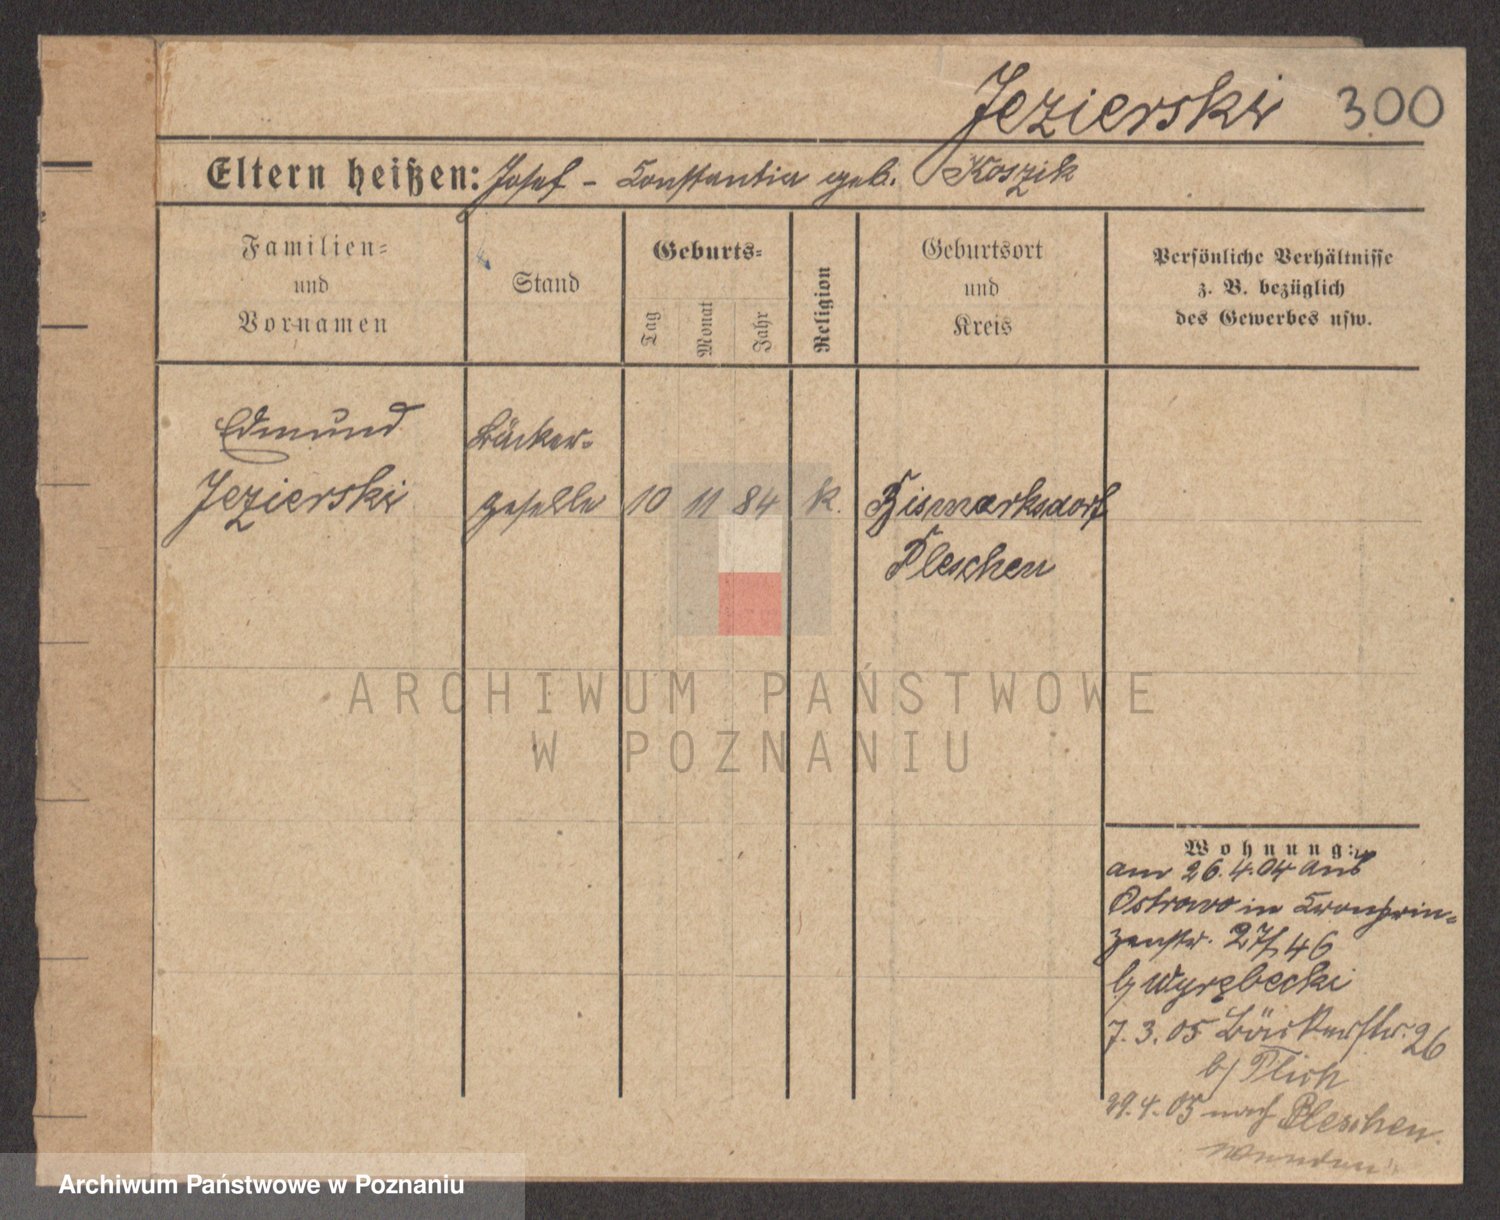 Jezierski 300
Eltern heißen: Josef - Constantia geb. Koszik
Familien-
und
Vornamen
Stand
Geburts-
Tag
Monat
Jahr
Religion
Geburtsort
und
Kreis
Persönliche Verhältnisse
z. B. bezüglich
des Gewerbes usw.
Edmund
Jezierski
Bäcker-
geselle
10 11 84 k.
Bismarksdorf
Pleschen
ARCHIWUM PAŃSTWOWE
W POZNANIU
Wohnung:
am 26.4.04 aus
Ostrowo in Kronprin-
zenstr. 27/46
b/ Wyrębecki
7.3.05 Bäckerstr. 26
b/
29.4.05 nach Pleschen.
wenden!
Archiwum Państwowe w Poznaniu